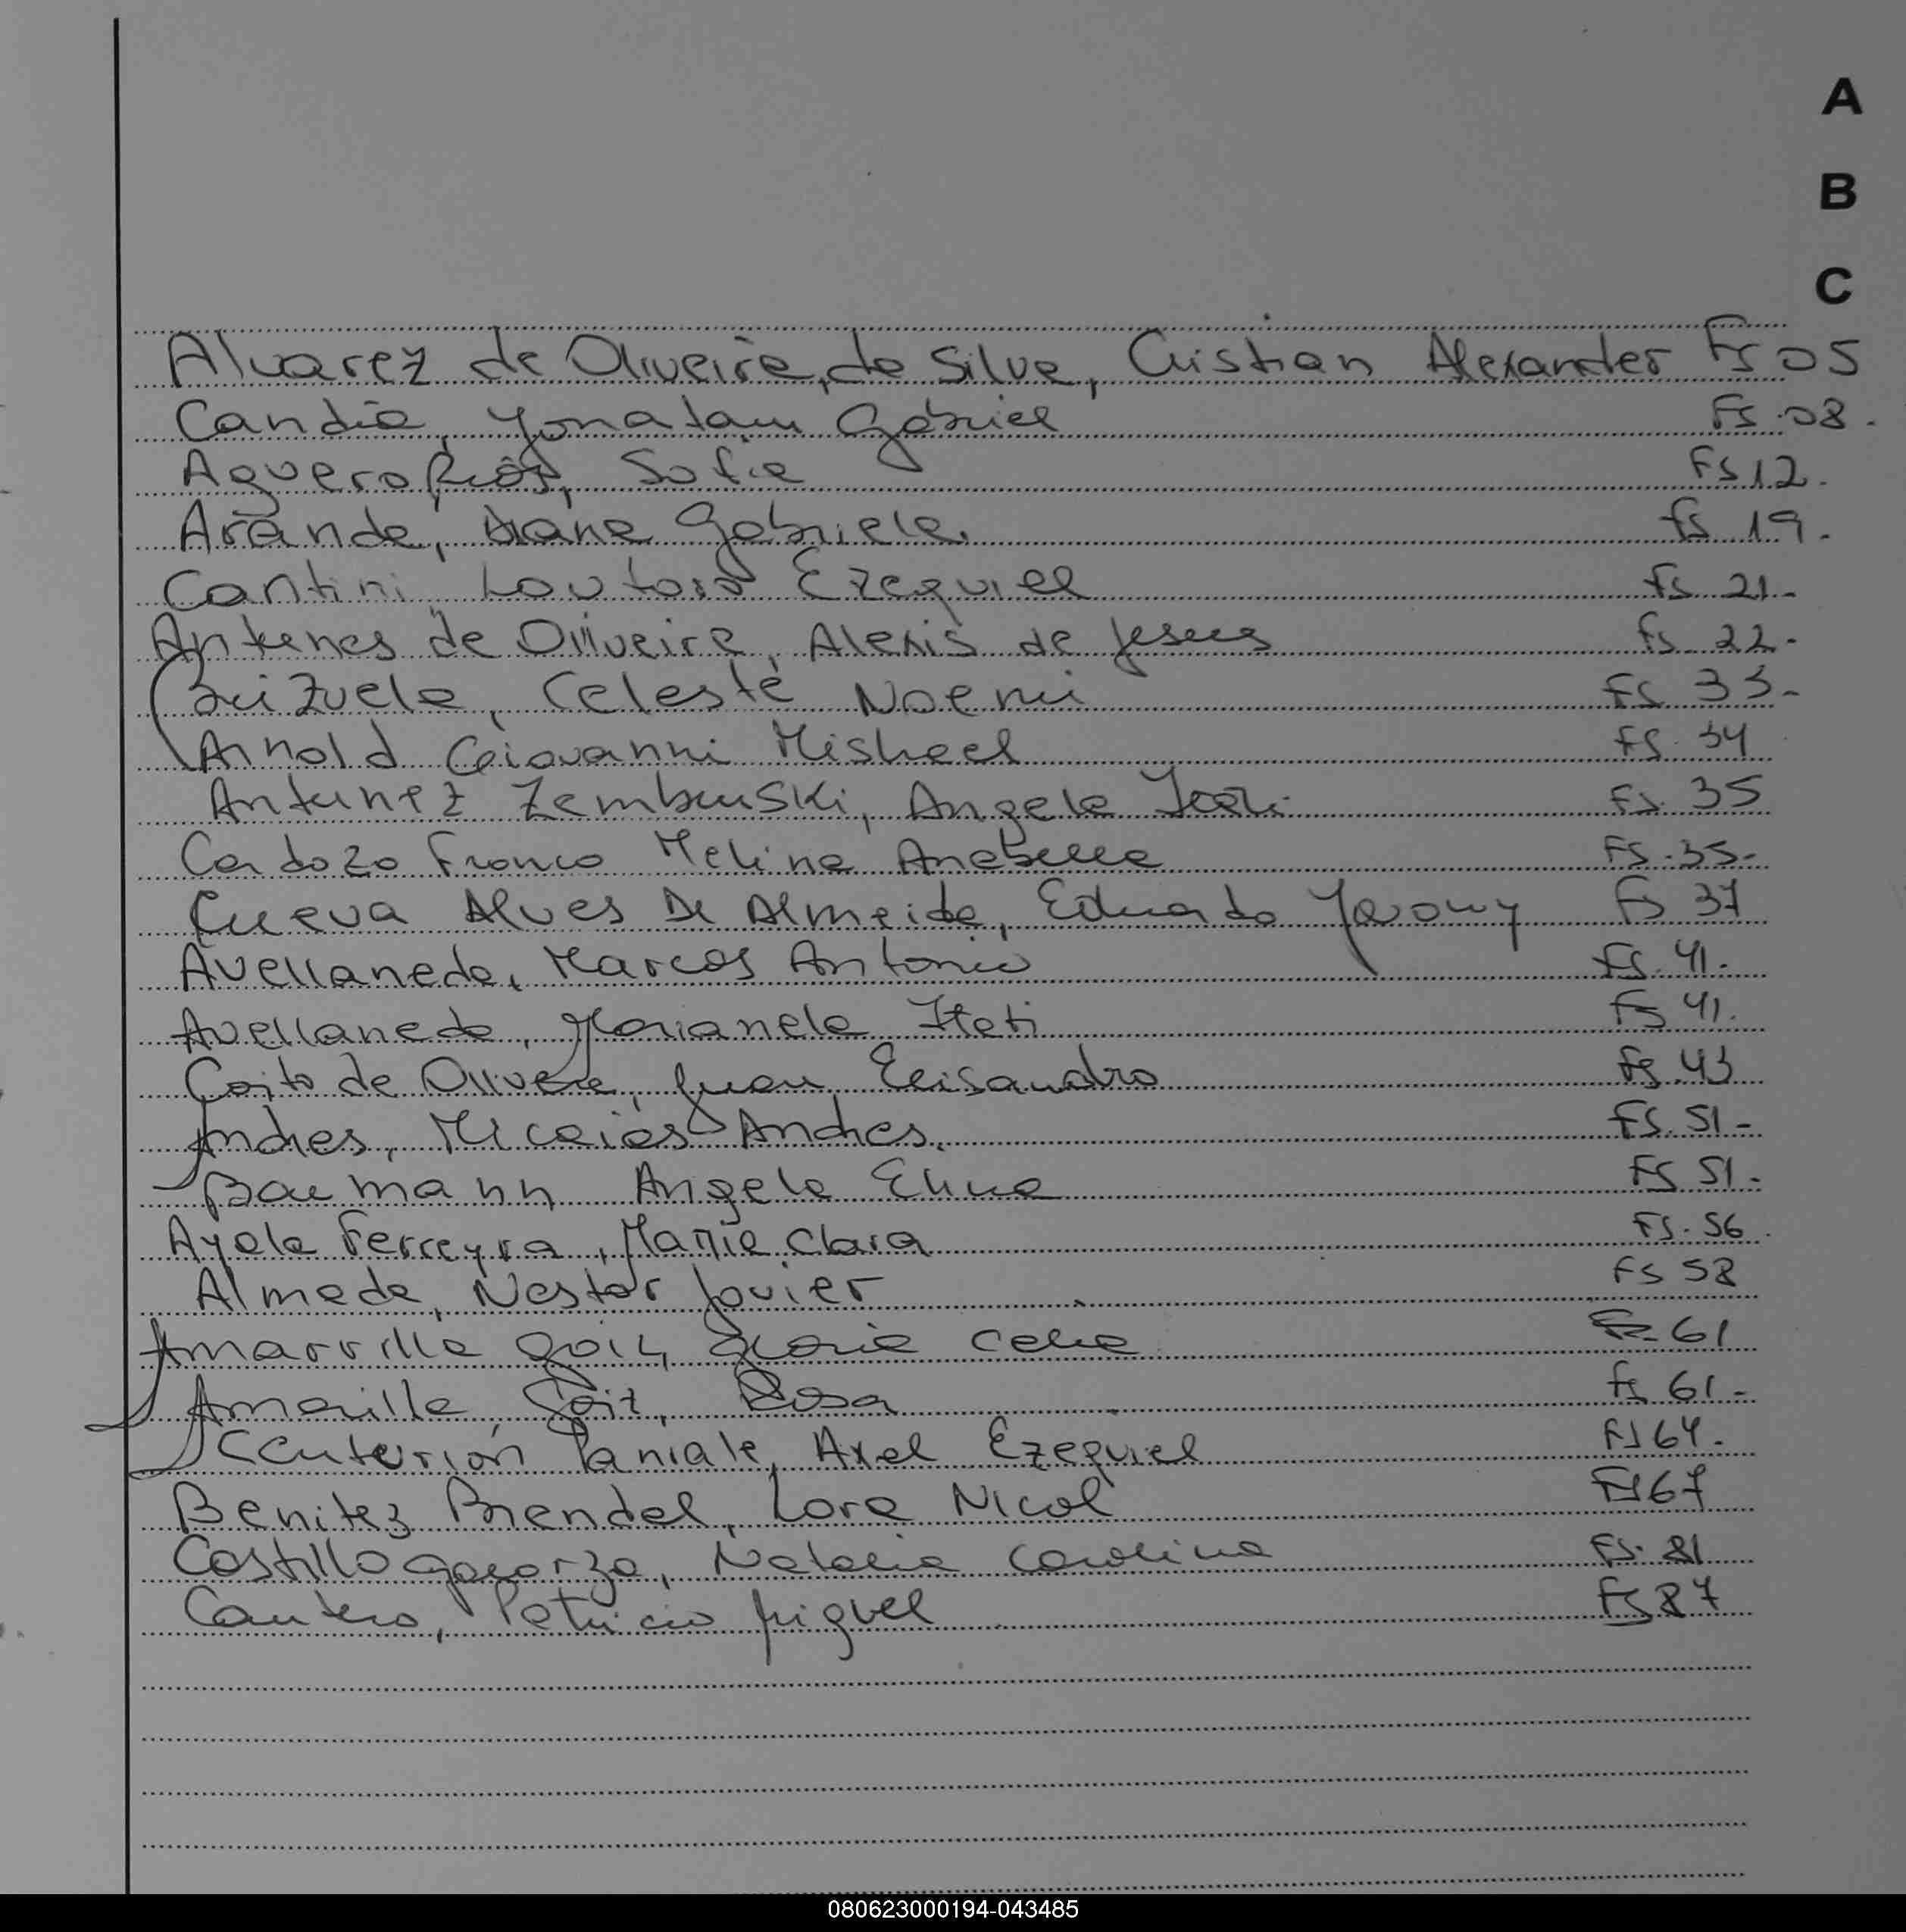 A
B
C
Alvarez de Oliveira, da Silva, Cristian Alexander Fs 05
Candia, Yonatan Gabriel Fs 08.
Aguero Rios, Sofia Fs 12.
Aranda, Diana Gabriela. fs 19.
Cantini, Lautaro Ezequiel fs 21.-
Antunes de Oliveira, Alexis de Jesus fs 22.-
Brizuela, Celeste Noemi Fs 33.-
Arnold Geovanni Misheel Fs. 34
Antunez Zembruski, Angela Fs. 35
Cardozo Franco Melina Anabella Fs. 35.-
Cueva Alves De Almeida, Eduardo Fs 37
Avellaneda, Marcos Antonio Fs. 41.
Avellaneda, Marianela Itati Fs 41.
Coito de Olivera, Juan Elisandro Fs. 43
Andres, Micaias Andres. Fs. 51-
Baumann Angela Elina Fs 51.
Ayala Ferreyra, Maria Clara Fs. 56
Almada, Nestor Javier Fs 58
Amarrilla Goiz, Gloria Celia Fs 61
Amarilla Goiz, Rosa fs 61-
Centurión Paniale, Axel Ezequiel Fs 64.
Benitez Brendel, Lara Nicol Fs 67
Castillo Natalia Carolina Fs. 81
Cantero, Patricio Miguel Fs 87
080623000194-043485